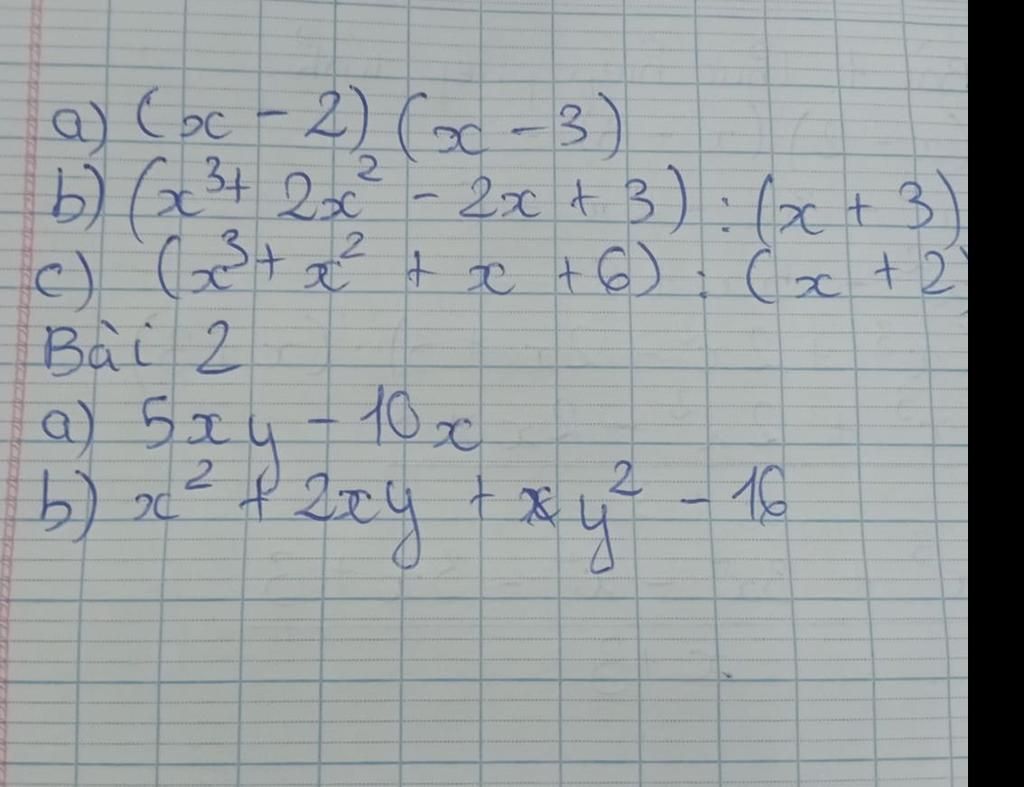 a) (x - 2) (x - 3)
b) (x³ + 2x² - 2x + 3) : (x + 3)
c) (x³ + x² + x + 6) : (x + 2)
Bài 2
a) 5xy - 10x
b) x² + 2xy + y² - 16